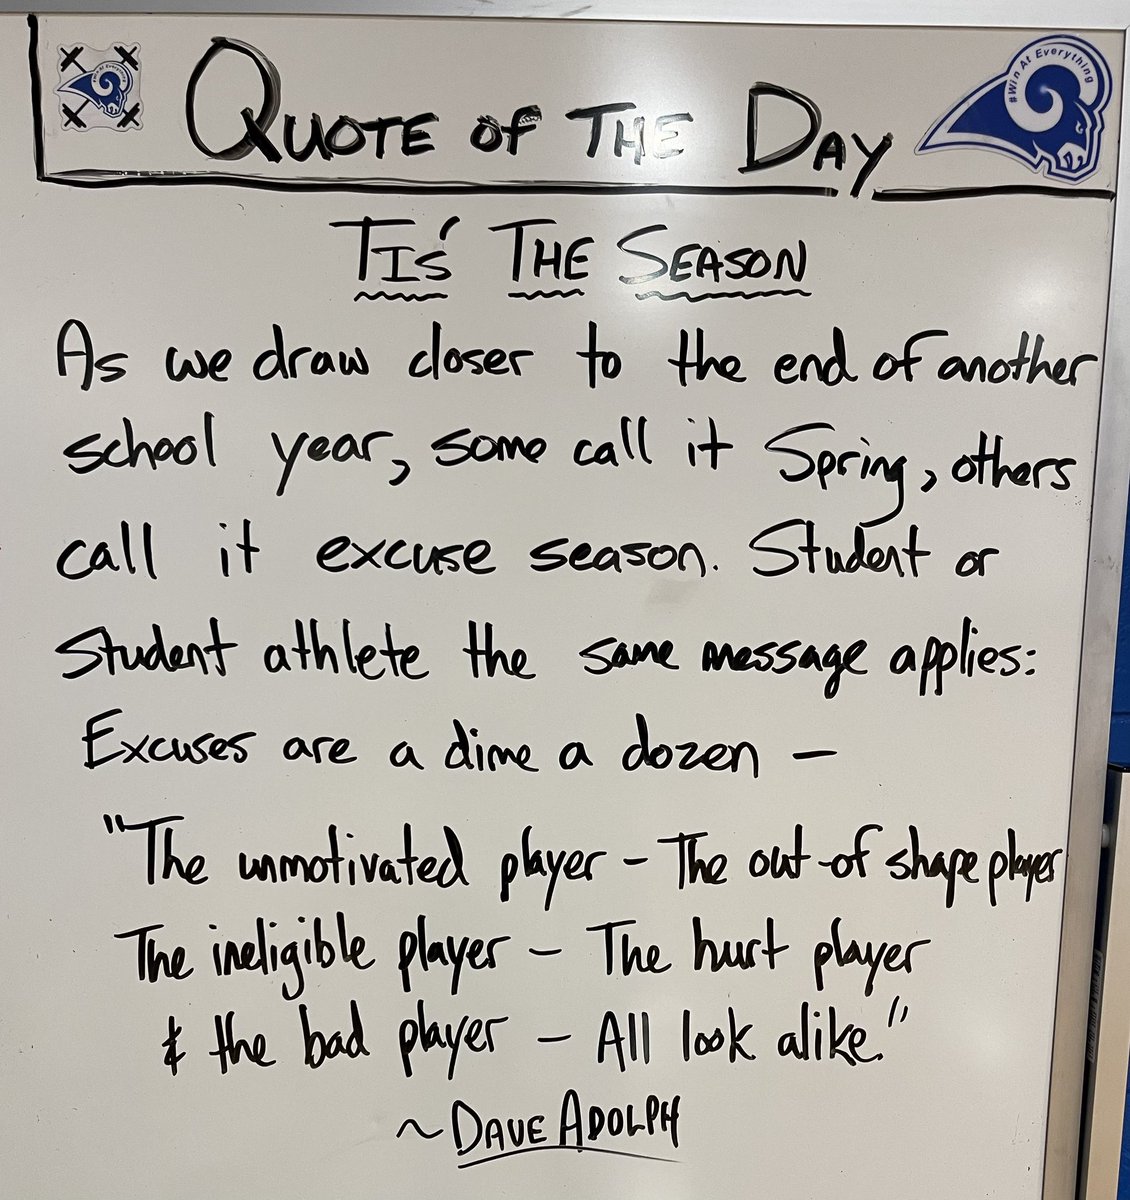 QUOTE OF THE DAY
#Win At Everything
TIS' THE SEASON
As we draw closer to the end of another
school year, some call it Spring, others
call it excuse season. Student or
student athlete the same message applies:
Excuses are a dime a dozen –
"The unmotivated player – The out-of shape player
The ineligible player – The hurt player
& the bad player – All look alike."
~ DAVE ADOLPH